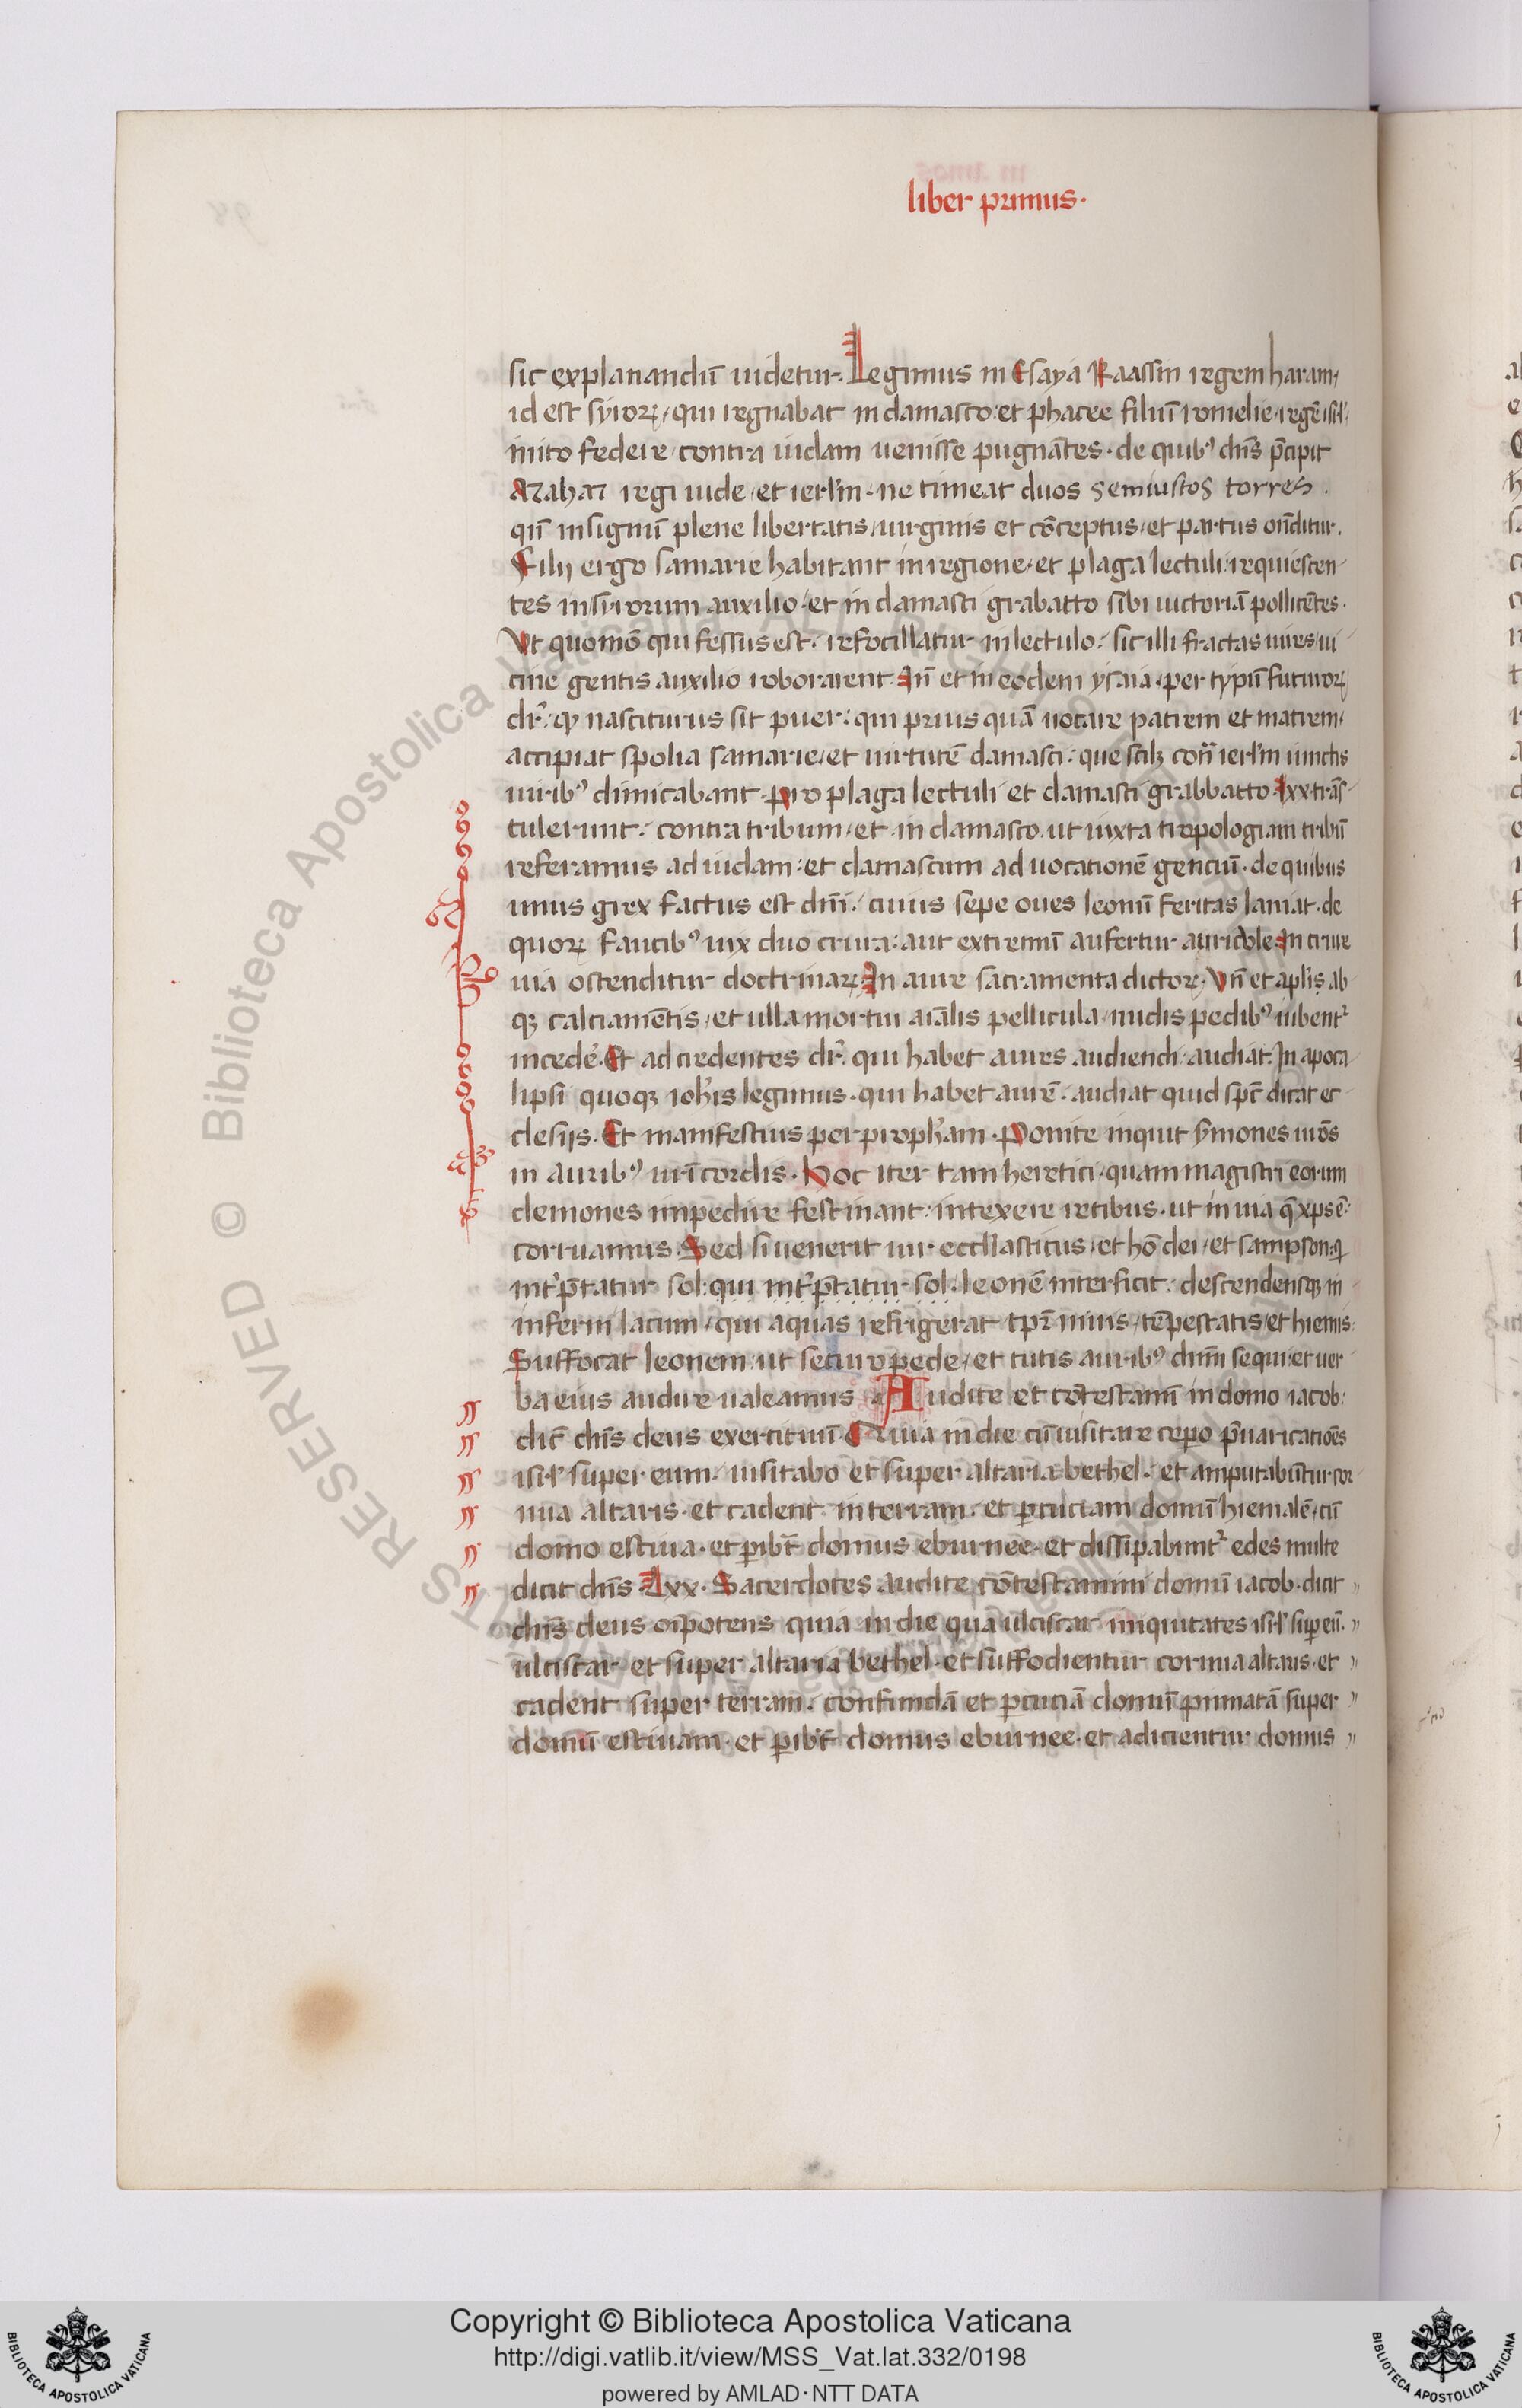 liber primus.
sic explanandū uidetur. Legimus in Esaya Raassin regem haram,
id est syroꝝ, qui regnabat in damasco: et phacee filiū romelie, regē isrl',
inito federe contra iudam uenisse pugnātes. de quibꝰ dn̄s p̄cipit
Azahaz regi iude, et ierl'm. ne timeat duos semiustos torres.
qn̄ in signū plene libertatis, uirginis et cōceptus, et partus on̄ditur.
Filij ergo samarie habitant in regione, et plaga lectuli: requiescen-
tes in syrorum auxilio, et in damasci grabatto sibi uictoriā pollicētes.
Vt quomō qui fessus est. refocillatur in lectulo: sic illi fractas uires, ui-
cine gentis auxilio roborarent. In̄ et in eodem ysaia. per typū futuroꝝ
dr̄. ꝙ nasciturus sit puer: qui prius quā uocare patrem et matrem,
accipiat spolia samarie, et uirtutē damasci: que scilꝫ cōn ierl'm iunctis
uiribꝰ dimicabant. Pro plaga lectuli et damasci grabbatto. lxx trās-
tulerunt. contra tribum, et in damasco. ut iuxta tropologiam tribū
referamus ad iudam: et damascum ad uocationē genciū. de quibus
unus grex factus est dn̄i. cuius sepe oues leonū feritas laniat. de
quoꝝ faucibꝰ uix duo crura: aut extremū aufertur auricule. In crure
uia ostenditur doctrinaꝝ. In aure sacramenta dictoꝝ. Vn̄ et aplis ab
qꝫ calciamētis, et ulla mortui aiālis pellicula, nudis pedibꝰ iubentᷣ
incedē. Et ad credentes dr̄. qui habet aures audiendi audiat. In apoca
lipsi quoqꝫ ioh'is legimus. qui habet aurē. audiat quid spc̄ dicat ec-
clesijs. Et manifestius per proph'am. Ponite inquit s̄mones meōs
in auribꝰ uri cordis. Hoc iter tam heretici, quam magistri eorum
demones impedire festinant: intexere retibus. ut in uia q̄ xps ē:
corruamus. Sed si uenerit uir eccl'asticus, et hō dei, et sampson: q
int'p̄tatur sol: qui int'p̄tatur sol. leonē interficit. descendensqꝫ in
inferni lacum, qui aquas refrigerat tp̄r niuis, tēpestatis et hiemis:
Suffocat leonem: ut securo pede, et tutis auribꝰ dn̄m sequi: et uer-
ba eius audire ualeamus. Audite et cōtestamī in domo iacob:
dic̄ dn̄s deus exercituū. Quia in die cū uisitare cepero p̄uaricatiōes
isrl' super eum. uisitabo et super altaria bethel. et amputabūtur cor-
nua altaris. et cadent in terram. et ꝑcuciam domū hiemalē, cū
domo estiua. et ꝑibūt domus eburnee. et dissipabuntᷣ edes multe
dicit dn̄s. lxx. Sacerdotes audite cōtestamini domū iacob. dicit
dn̄s deus oīpotens quia in die qua ulciscar iniquitates isrl' super eū.
ulciscar et super altaria bethel. et suffodientur cornua altaris. et
cadent super terram. confundā et ꝑcuciā domū pinnatā super
domū estiuam. et ꝑibūt domus eburnee. et adicientur domus
Copyright © Biblioteca Apostolica Vaticana
http://digi.vatlib.it/view/MSS_Vat.lat.332/0198
powered by AMLAD·NTT DATA